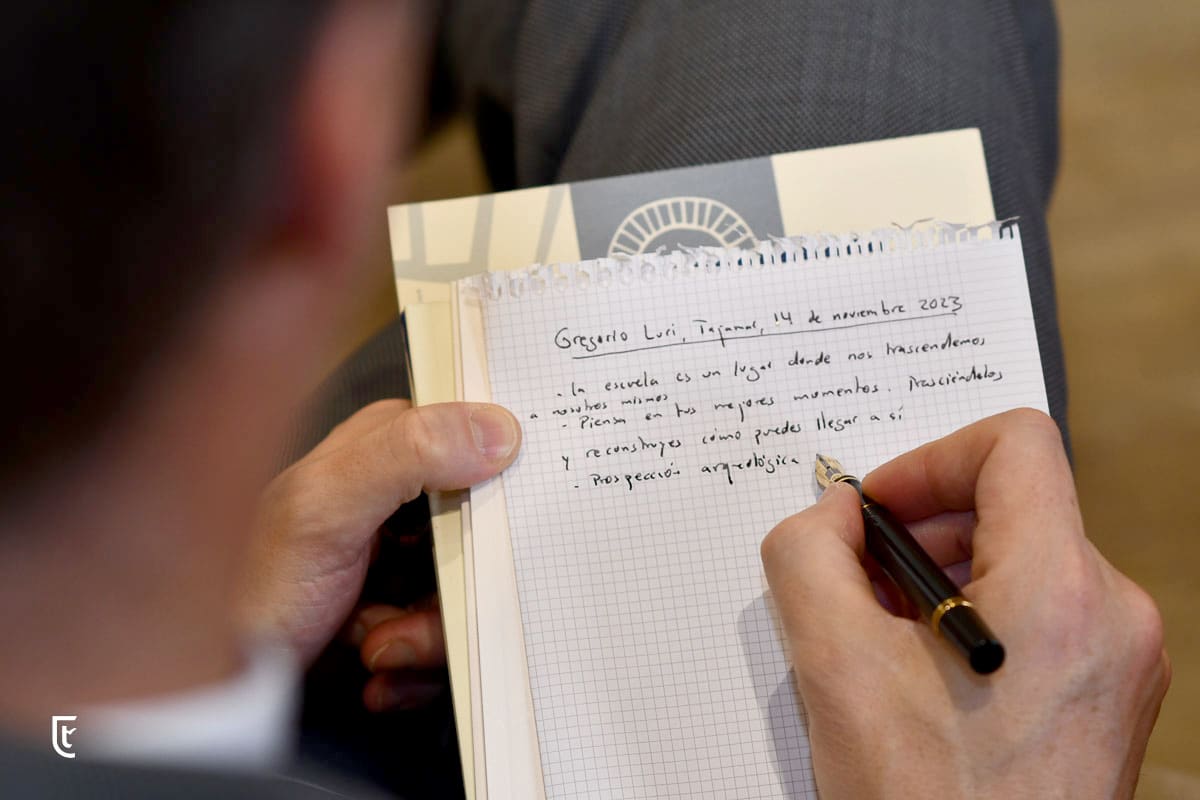 Gregorio Luri, Tajamar, 14 de noviembre 2023
- La escuela es un lugar donde nos trascendemos
a nosotros mismos
- Piensa en tus mejores momentos. Trasciéndelos
y reconstruyes cómo puedes llegar a sí
- Prospección arqueológica